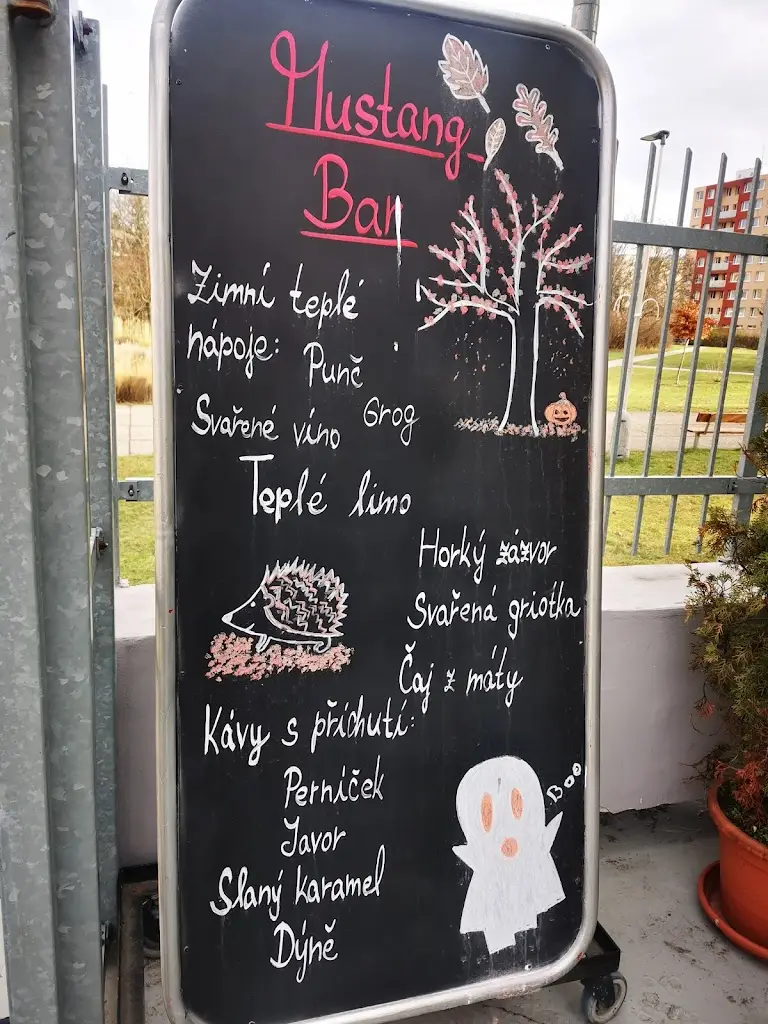 Mustang
Bar
Zimní teplé
nápoje: Punč
Svařené víno Grog
Teplé limo
Horký zázvor
Svařená griotka
Čaj z máty
Kávy s příchutí:
Perníček
Javor
Slaný karamel
Dýně
Boo